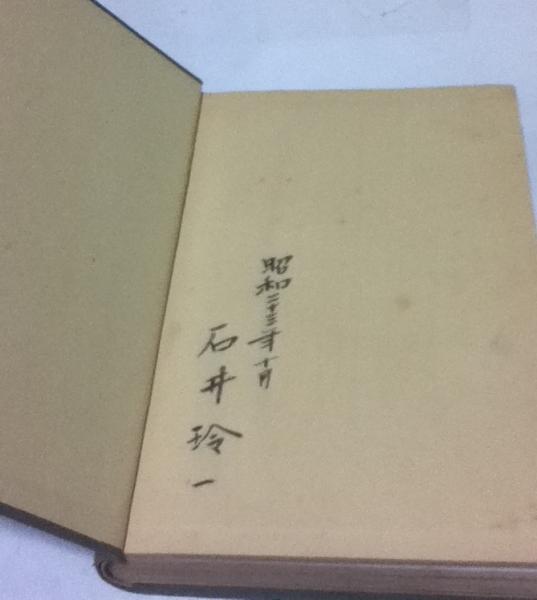 昭和二十三年十月
石井玲一